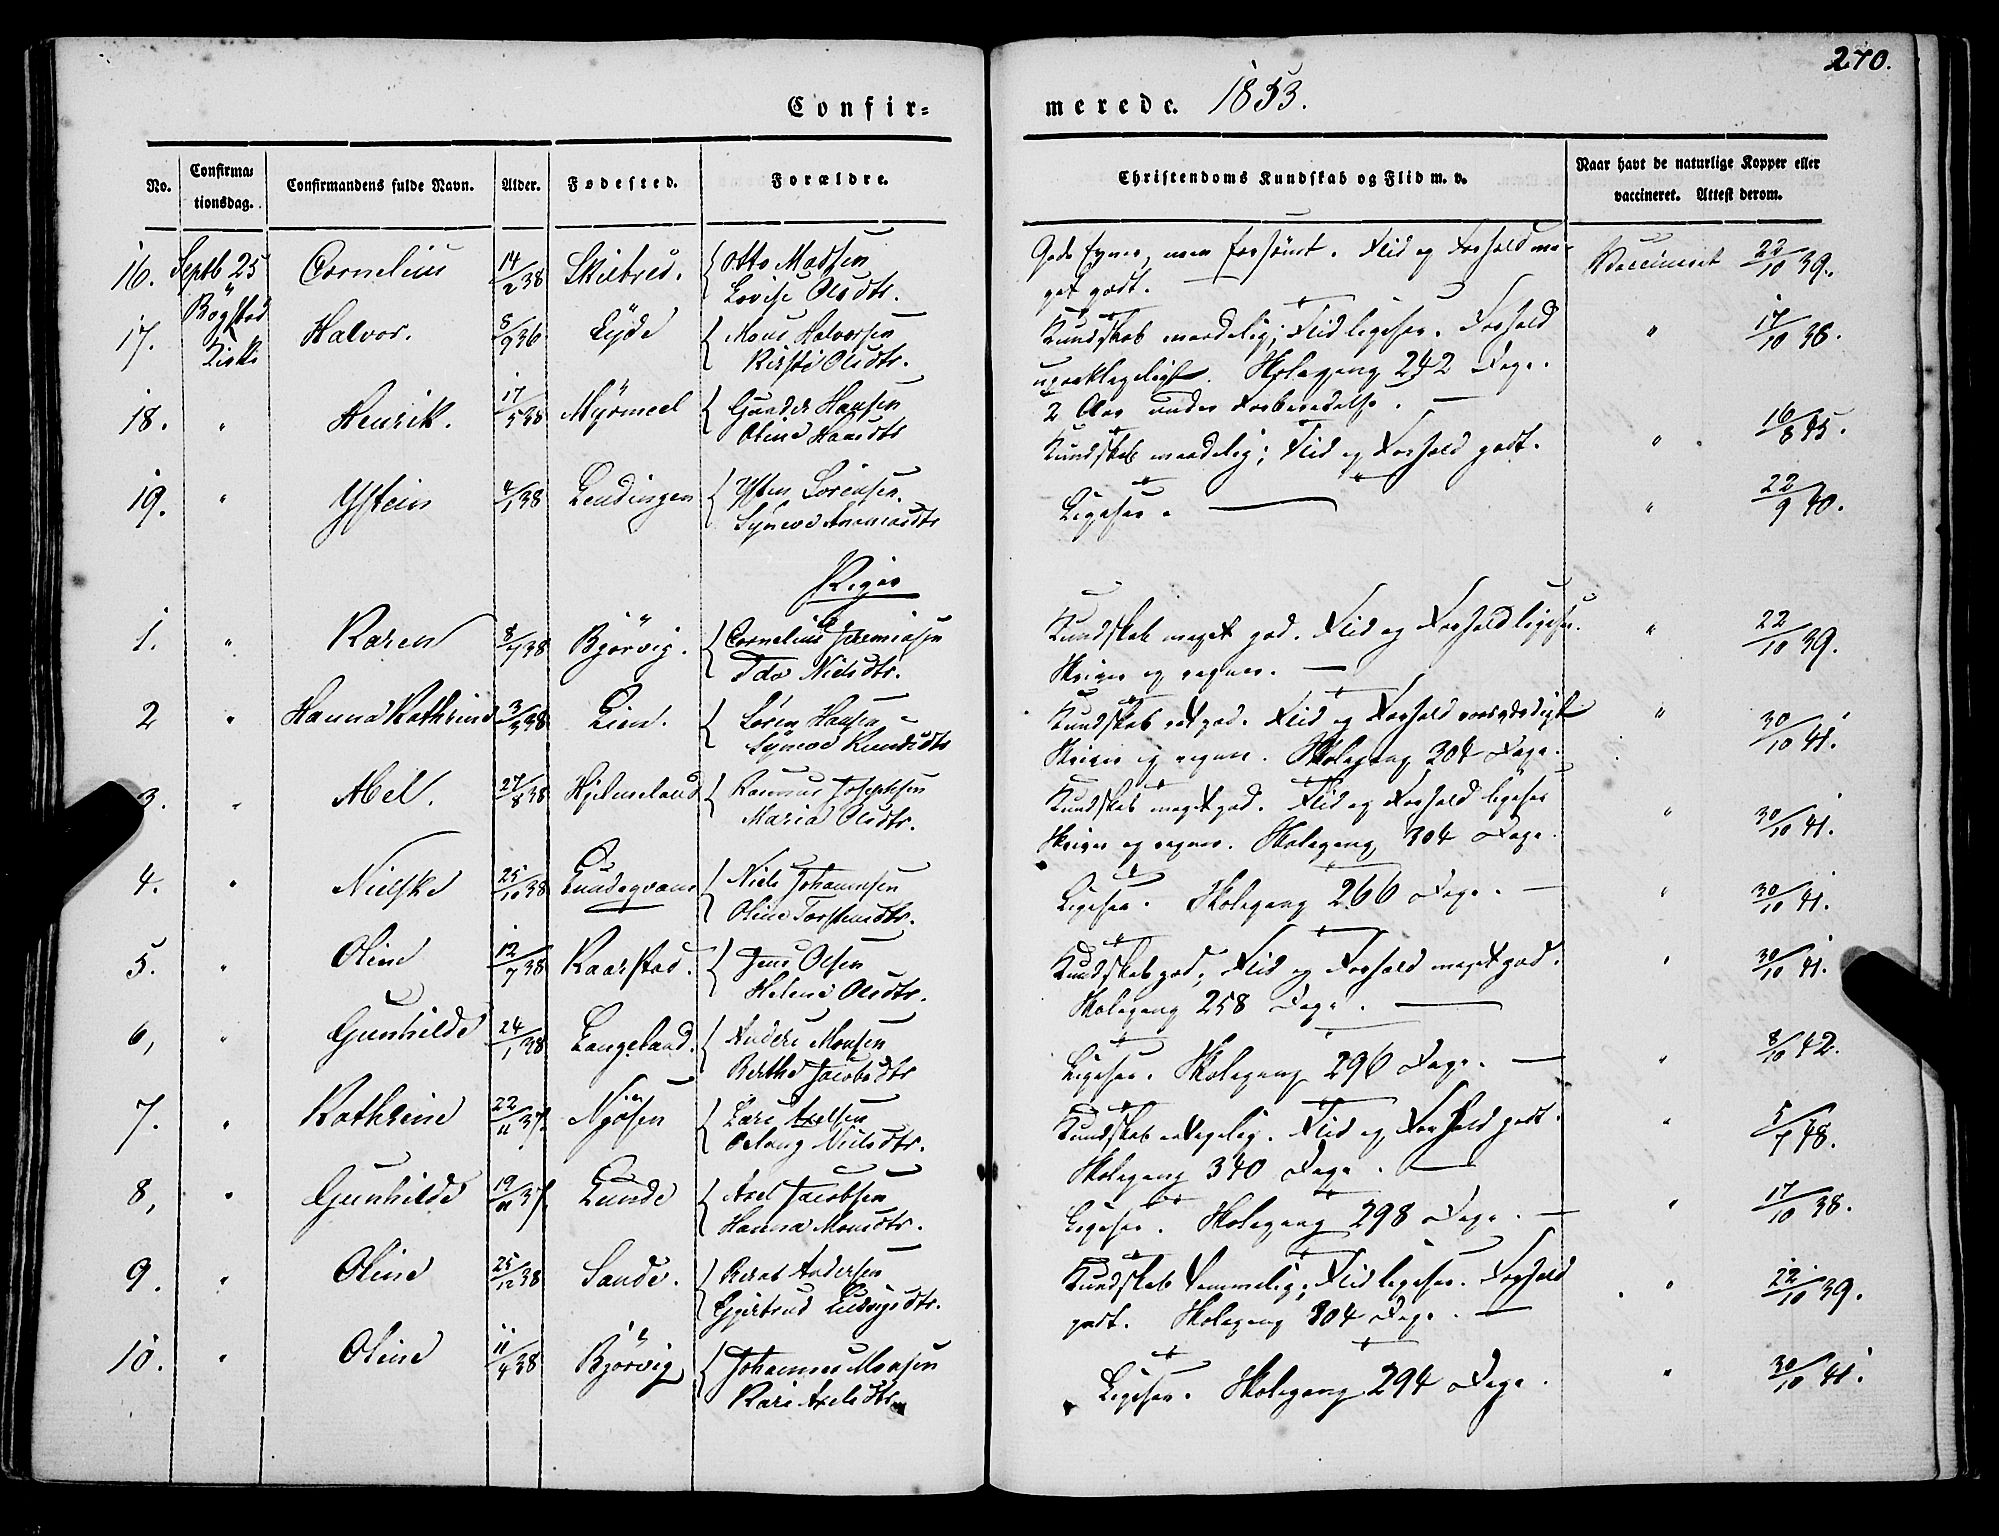 270.
Confir=
merede. 1853.
No.
Confirma=
tionsdag.
Confirmandens fulde Navn.
Alder.
Fødested.
Forældre.
Christendoms Kundskab og Flid m. v.
Naar havt de naturlige Kopper eller
vaccineret. Attest derom.
16. Septb 25 Cornelius 14/2 38 Skilbred. Otto Madsen
Lovise Olsdtr.
Gode Evner, men forsømt. Flid og Forhold me-
get godt. Vaccineret 22/10 39.
17. Kirke Halvor. 8/9 36 Mons Halvorsen
Kirsti Olsdtr.
Kundskab maadelig; Flid ligesaa. Forhold
upaaklageligt. Skolegang 242 Dage.
2 Aar under Forberedelse.
" 17/10 38.
18. " Henrik. 17/5 38 Myrmeel Hansen
Oline Hansdtr
Kundskab maadelig; Flid og Forhold godt. " 16/8 45.
19. " Ystein 4/1 38 Lendingen Ysten Sörensen.
Synove
Ligesaa. " 22/9 40.
Piger
1. " Karen 8/7 38 Bjørvig. Cornelius Jeremiasen
Ida Nielsdtr.
Kundskab meget god. Flid og Forhold ligesaa.
Skriver og regner. " 22/10 39.
2 " Hanna Kathrine 3/3 38 Lien. Sören Hansen
Synove Knudsdtr
Kundskab ret god. Flid og Forhold roesværdigt
Skriver og regner. Skolegang 304 Dage. " 30/10 41.
3. " Abel. 27/8 38 Hjelmeland Rasmus Josephsen
Maria Olsdtr.
Kundskab meget god. Flid og Forhold ligesaa
Skriver og regner. Skolegang 304 Dage. " 30/10 41.
4. " Nielske 25/10 38 Niels Johannesen
Oline Torstensdtr.
Ligesaa. Skolegang 266 Dage. " 30/10 41.
5. " Oline 12/7 38 Kaarstad. Jens Olsen
Helene Olsdtr.
Kundskab god; Flid og Forhold meget god.
Skolegang 258 Dage. " 30/10 41.
6, " Gunhilde 24/1 38 Langeland. Anders Monsen
Berthe Jacobsdtr
Ligesaa. Skolegang 296 Dage. " 8/10 42.
7. " Kathrine 22/11 37. Njøsen Lars Axelsen
Nielsdtr.
Kundskab Flid og Forhold godt.
Skolegang 340 Dage. " 5/7 48.
8, " Gunhilde 19/11 37. Lunde Axel Jacobsen
Hanna Monsdtr.
Ligesaa. Skolegang 298 Dage. " 17/10 38.
9. " Oline 25/12 38 Sande. Bernt Andersen
Gjertrud Ludvigsdtr.
Kundskab temmelig; Flid ligesaa. Forhold
godt. Skolegang 304 Dage. " 22/10 39.
10. " Oline 11/4 38 Bjørvig Johannes Monsen
Kari Axelsdtr
Ligesaa. Skolegang 294 Dage. " 30/10 41.